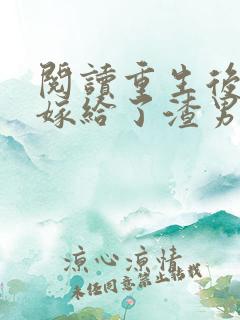 閱讀重生後
嫁給了渣男
涼心涼情
未经同意禁止转载